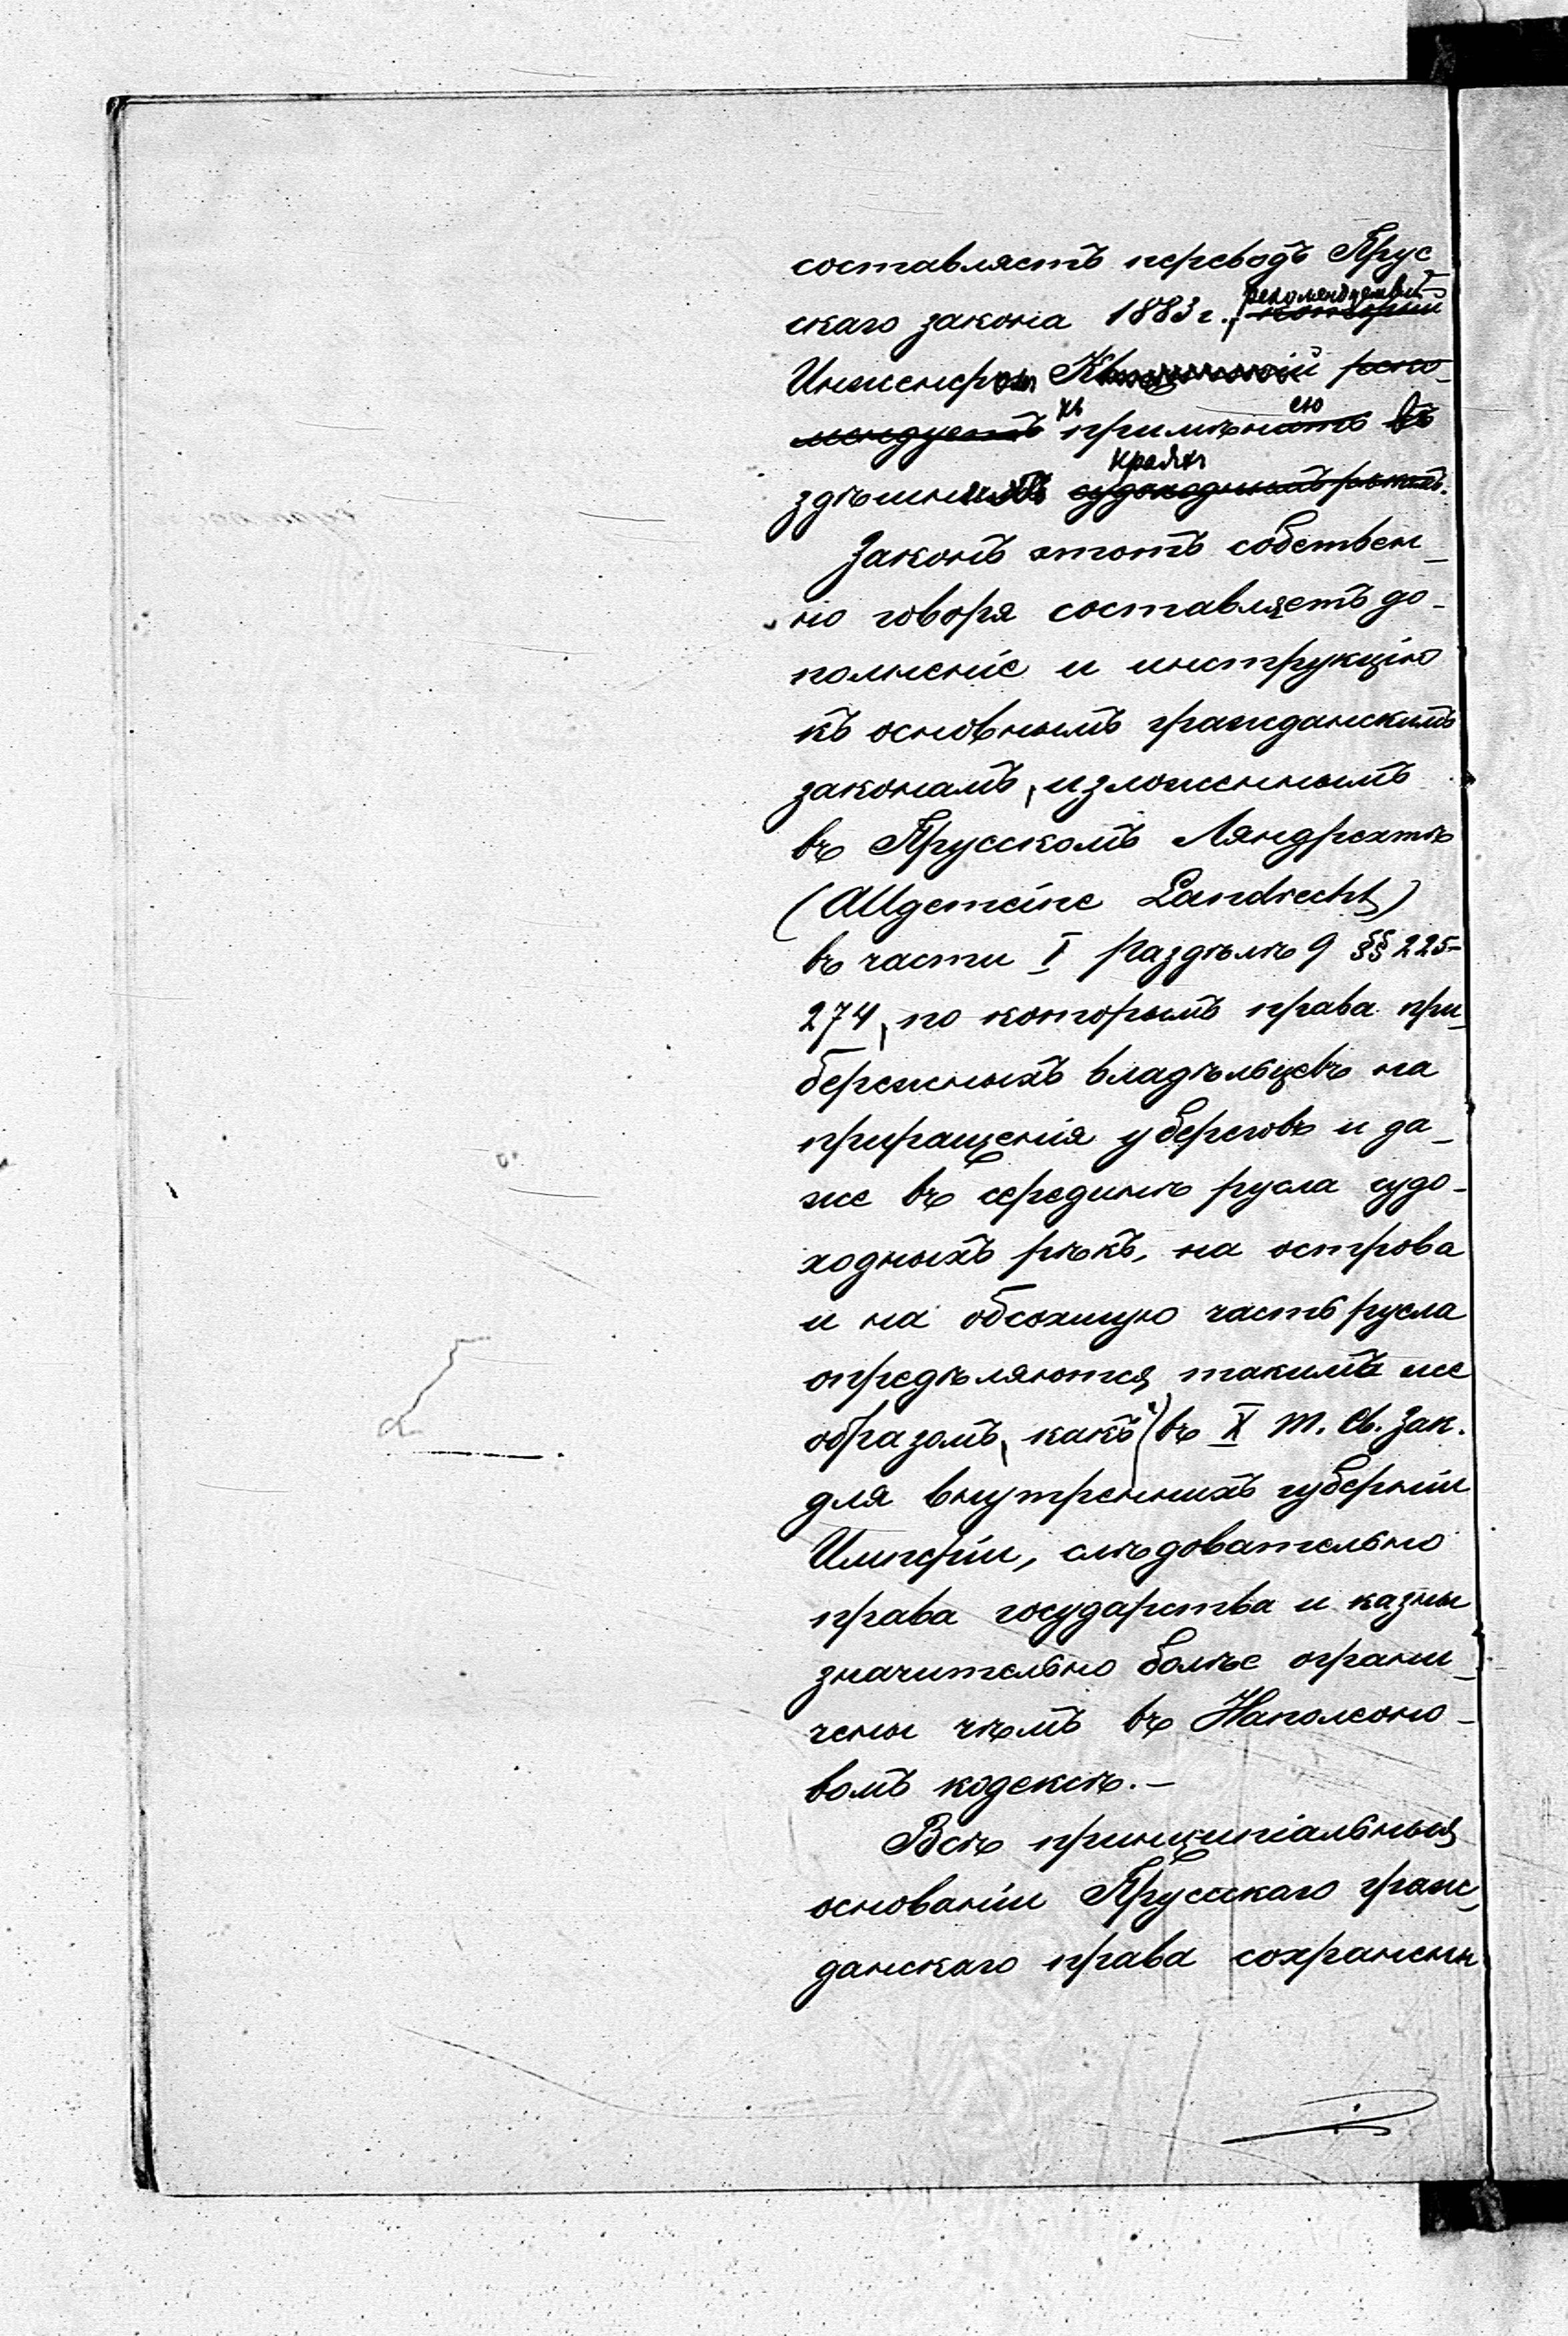 составляетъ переводъ Прус
скаго закона 1883 г., который
Инженеръ реко-
мендуетъ къ примѣненію въ
здѣшнихъ краяхъ судоходныхъ рѣкахъ.
Законъ этотъ собствен-
но говоря составляетъ до-
полненіе и инструкцію
къ основнымъ гражданскимъ
законамъ, изложеннымъ
въ Прусскомъ Ляндрехтѣ
(Allgemeine Landrecht)
въ части I раздѣлѣ 9 §§ 225-
274, по которымъ права при-
бережныхъ владѣльцевъ на
приращенія у береговъ и да-
же въ серединѣ русла судо-
ходныхъ рѣкъ, на острова
и на обсохшую часть русла
опредѣляются такимъ же
образомъ, какъ въ X Т. Св. Зак.
для внутреннихъ губерніи
Имперіи, слѣдовательно
права государства и казны
значительно болѣе ограни-
чены чѣмъ въ Наполеоно-
вомъ кодексѣ.-
Всѣ принципіальныя
основаніи Прусскаго граж-
данскаго права сохранены